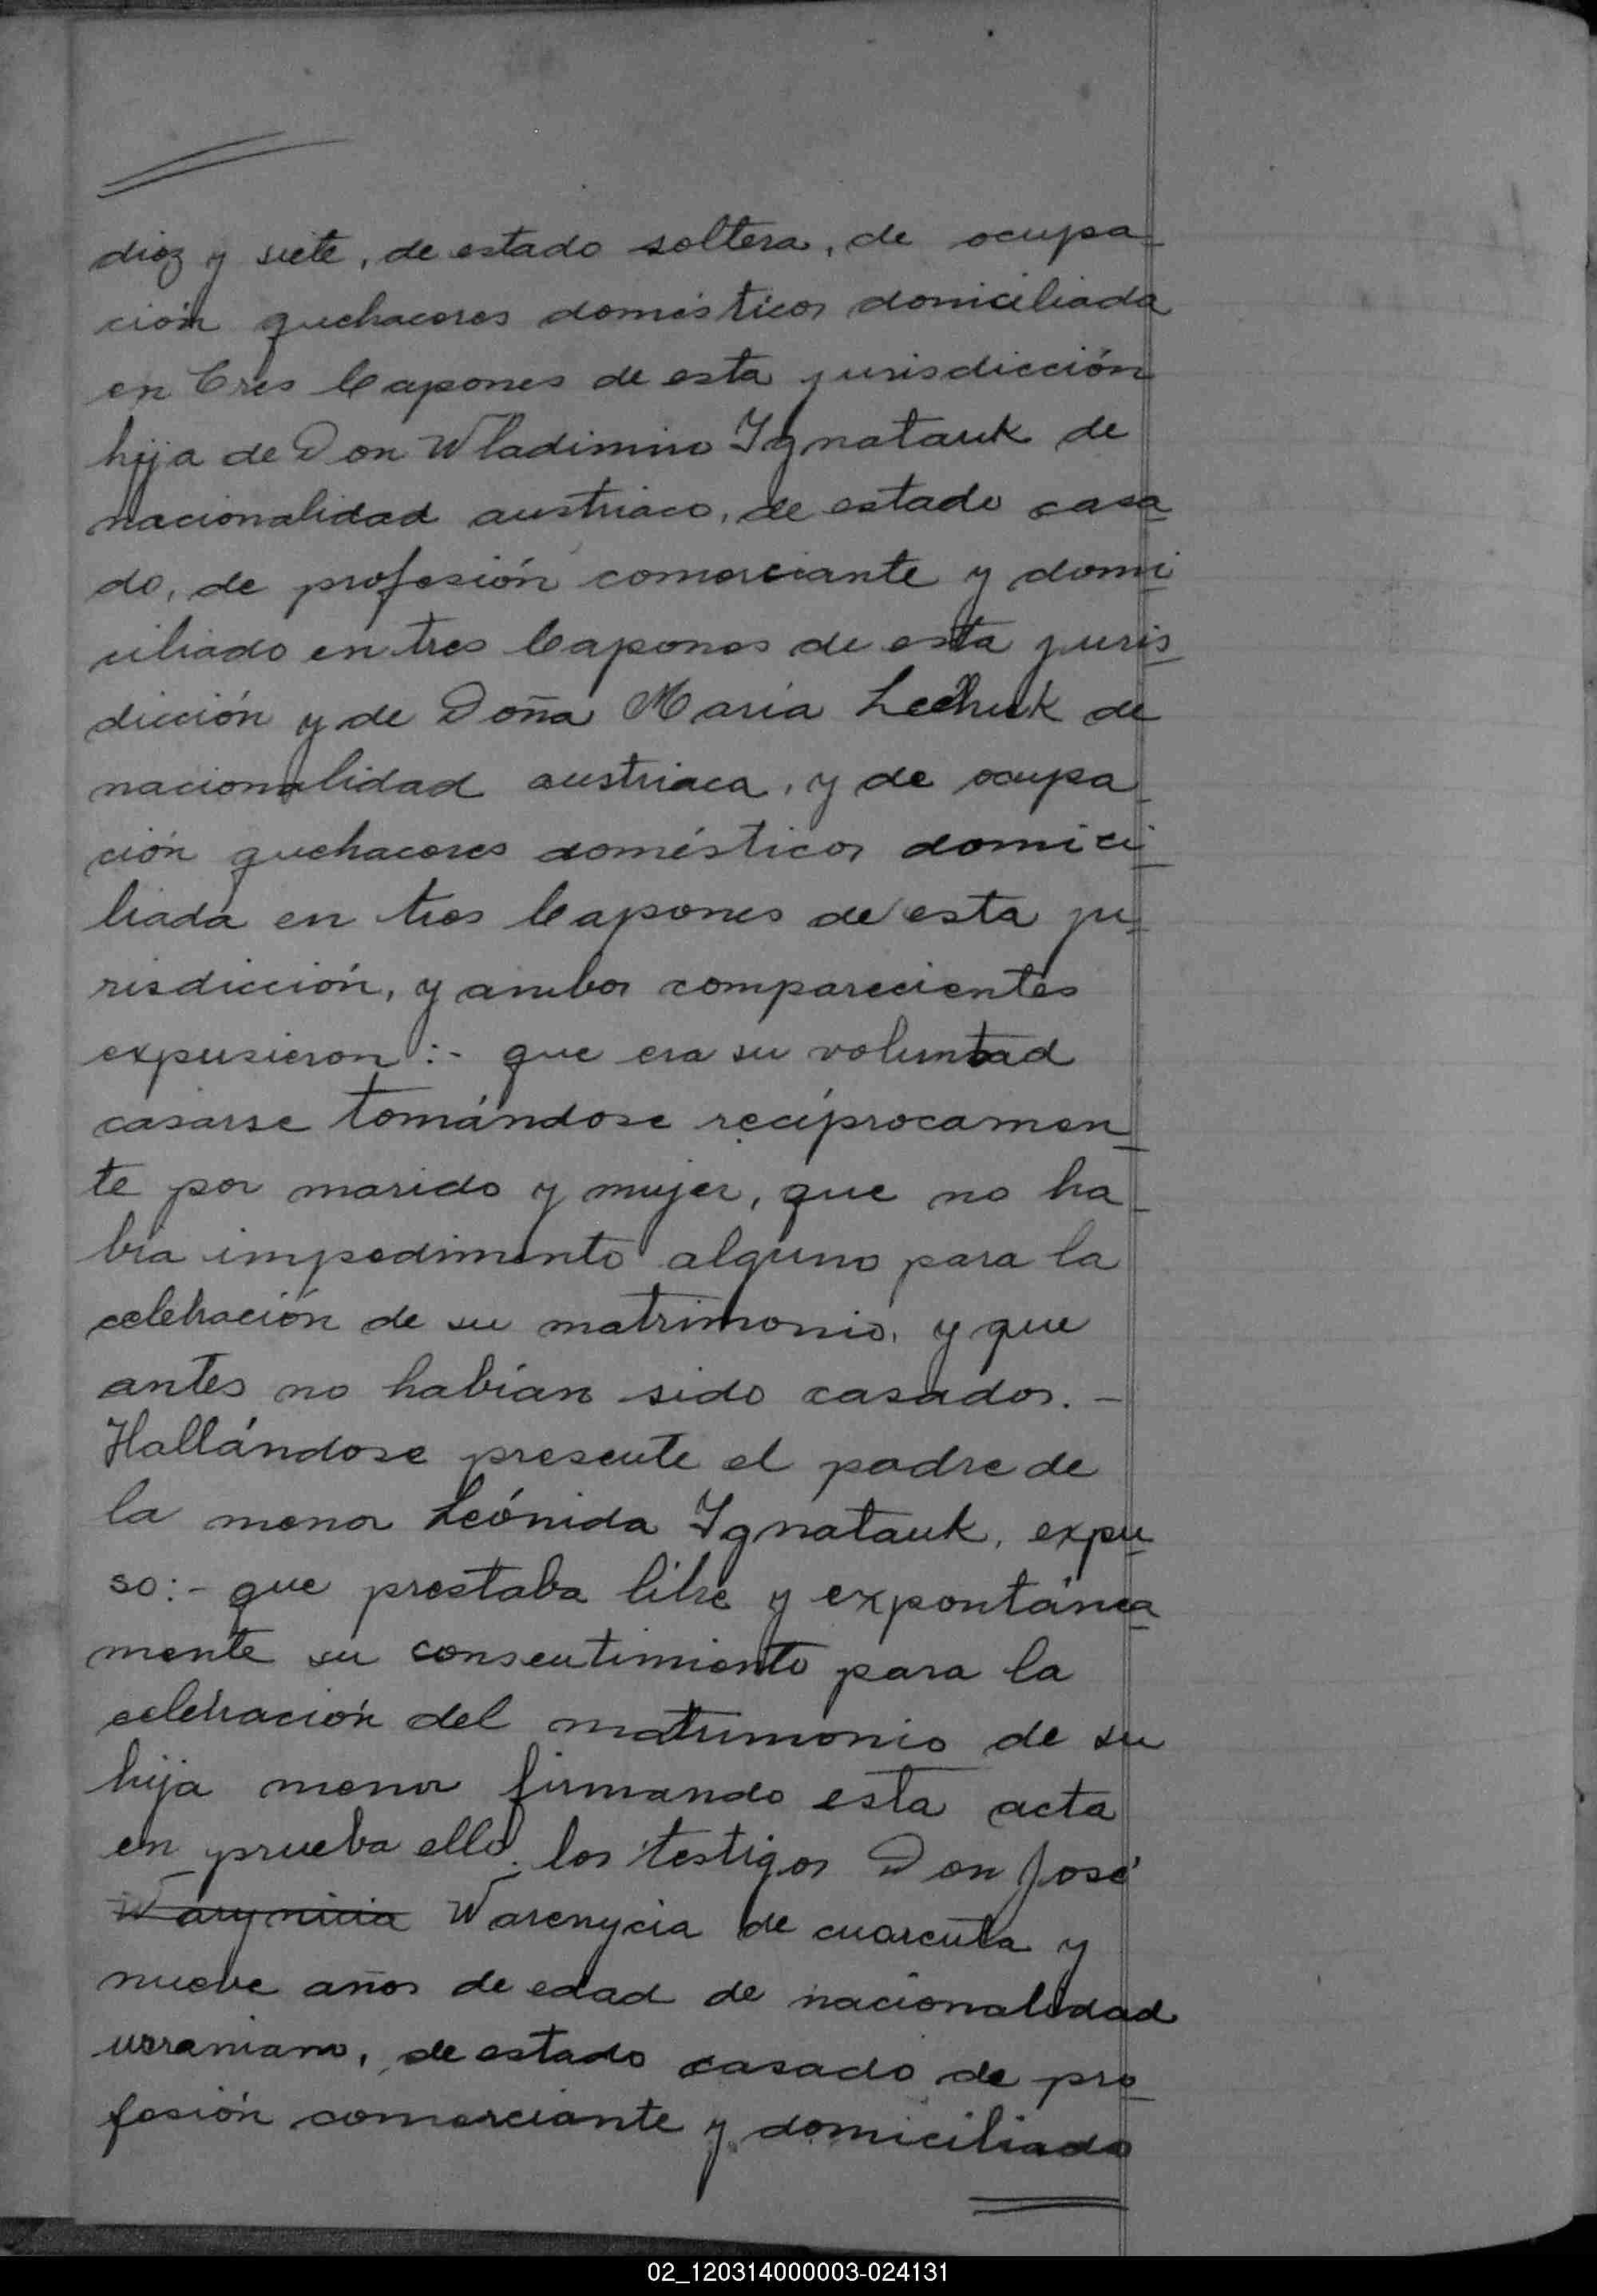 diez y siete, de estado soltera, de ocupa-
ción quehaceres domésticos domiciliada
en Tres Capones de esta jurisdicción
hija de Don Wladimiro Ygnatauk de
nacionalidad austriaco, de estado casa-
do, de profesión comerciante y domi-
ciliado en tres Capones de esta juris-
dicción y de Doña Maria Lechuk de
nacionalidad austriaca, y de ocupa-
ción quehaceres domésticos domici-
liada en tres Capones de esta ju-
risdicción, y ambos comparecientes
expusieron:- que era su voluntad
casarse tomándose recíprocamen-
te por marido y mujer, que no ha-
bia impedimento alguno para la
celebración de su matrimonio, y que
antes no habían sido casados. -
Hallándose presente el padre de
la menor Leónida Ygnatauk, expu-
so:- que prestaba libre y expontánea-
mente su consentimiento para la
celebración del matrimonio de su
hija menor firmando esta acta
en prueba ello. los testigos Don José
Warynicia Warenycia de cuarenta y
nueve años de edad de nacionalidad
ucraniano, de estado casado de pro-
fesión comerciante y domiciliado
02_120314000003-024131